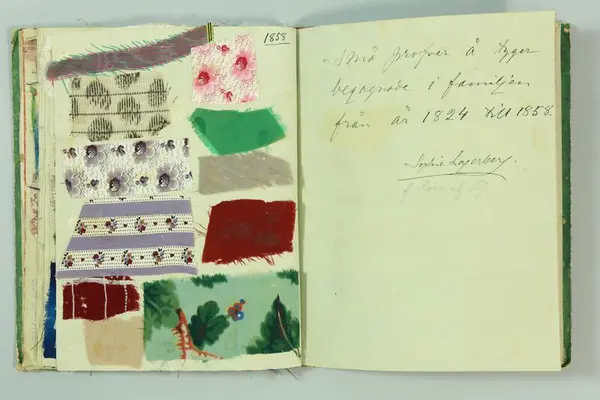 1858
Små profver å tyger
begagnade i familjen
från år 1824 till 1858.
Sophie Lagerberg.
f.